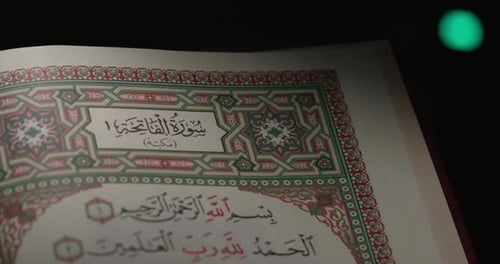 سُورَةُ الْفَاتِحَةِ ١
(مَكِّيَّة)
بِسْمِ اللَّهِ الرَّحْمَٰنِ الرَّحِيمِ ١
الْحَمْدُ لِلَّهِ رَبِّ الْعَالَمِينَ ٢